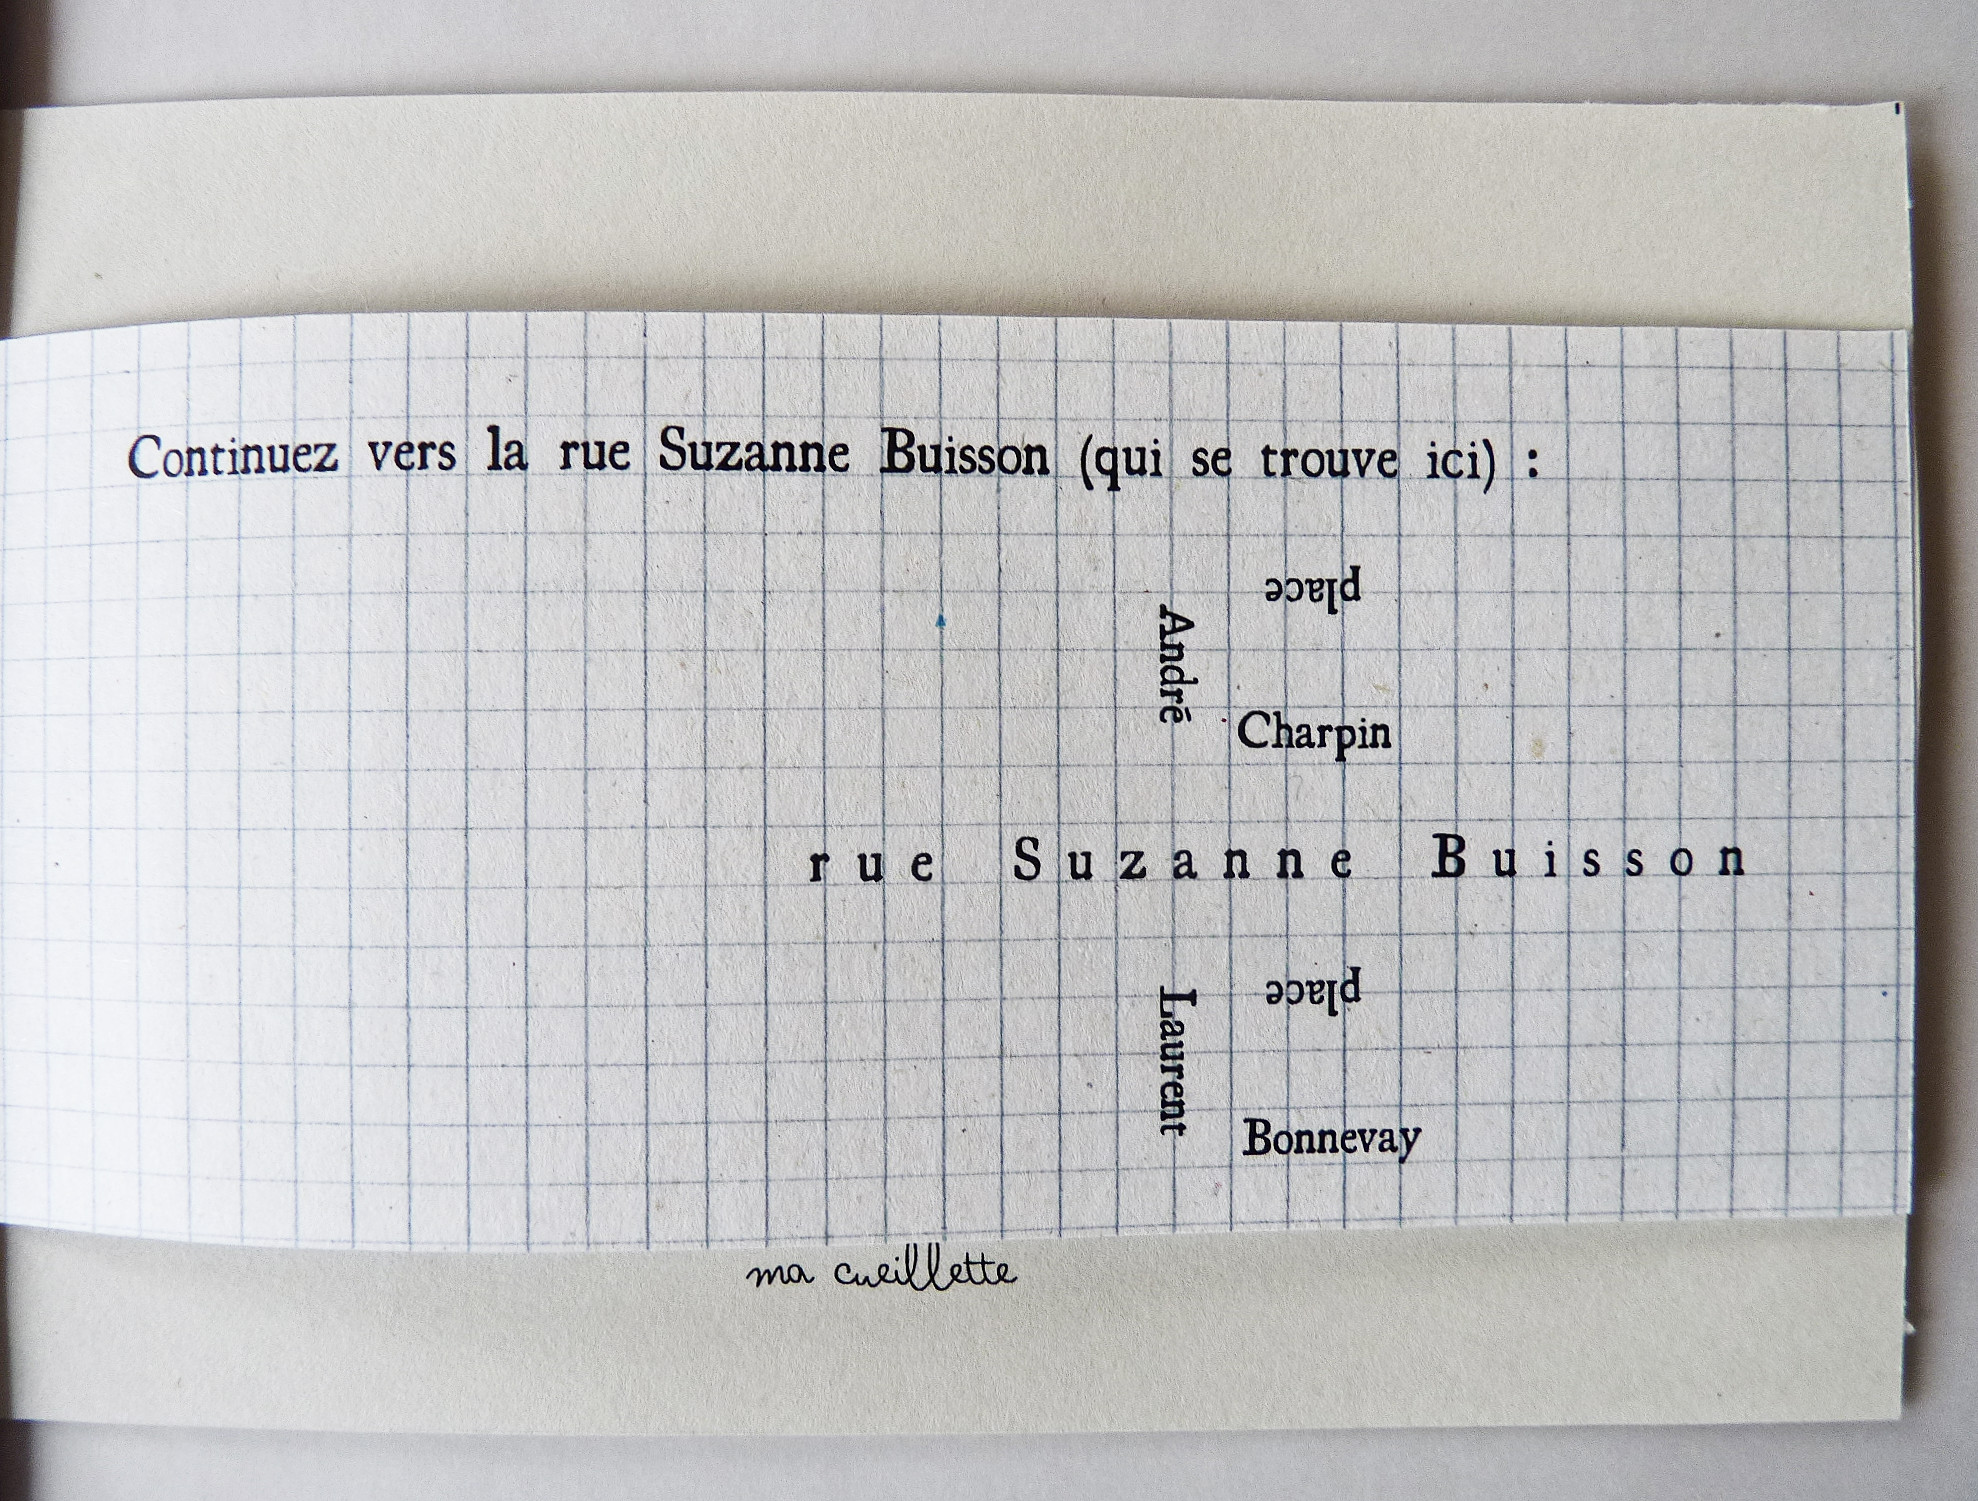 Continuez vers la rue Suzanne Buisson (qui se trouve ici) :
place
André
Charpin
rue Suzanne Buisson
place
Laurent
Bonnevay
ma cueillette